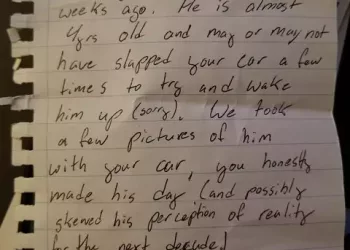 weeks ago. He is almost
4yrs old and may or may not
have slapped your car a few
times to try and wake
him up (sorry). We took
a few pictures of him
with your car, you honestly
made his day (and possibly
skewed his perception of reality
for the next decade)